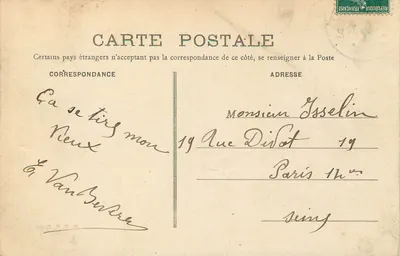 CARTE POSTALE
Certains pays étrangers n'acceptent pas la correspondance de ce côté, se renseigner à la Poste
CORRESPONDANCE
ADRESSE
Ça se tire mon
Vieux
Monsieur Isselin
19 Rue Didot 19
Paris 14me
Seine